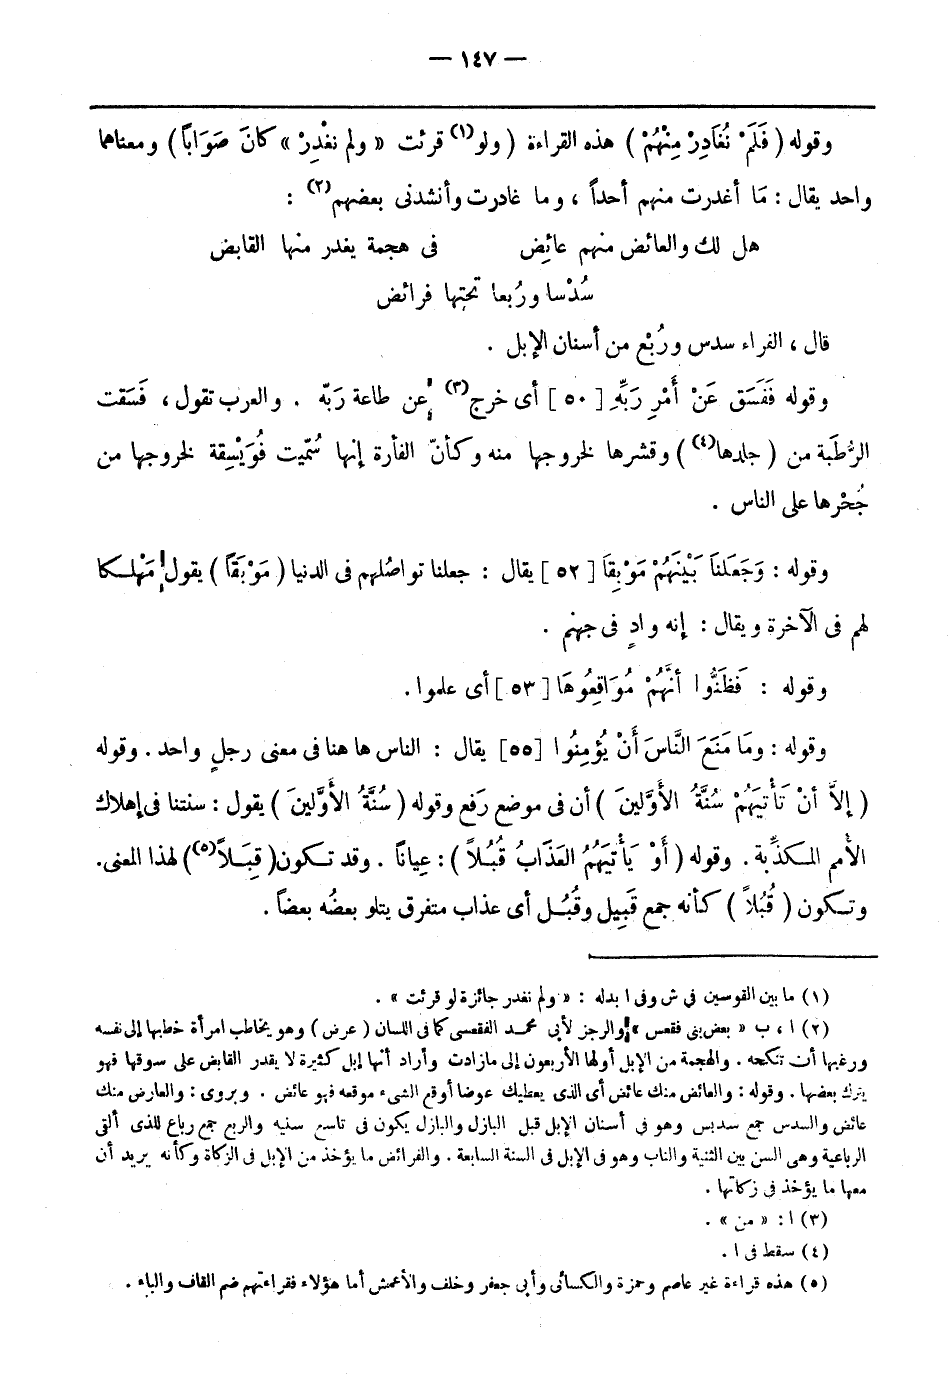 — ١٤٧ —
وقوله ( فَلَمْ نُغَادِرْ مِنْهُمْ ) هذه القراءة ( ولو(١) قرئت « ولم نغْدِرْ » كانَ صَوَاباً ) ومعناهما
واحد يقال : مَا أغدرت منهم أحداً ، وما غادرت وأنشدنى بعضهم(٢) :
هل لك والعائض منهم عائِض فى هجمة يغدر منها القابض
سُدْسا ورُبعا تحتها فرائض
قال ، الفراء سدس ورُبْع من أسنان الإبل .
وقوله فَفَسَق عَنْ أَمْرِ رَبِّهِ [ ٥٠ ] أى خرج(٣) عن طاعة رَبّه . والعرب تقول ، فَسَقت
الرُّطَبة من ( جلدها(٤) ) وقشرها لخروجها منه وكأنّ الفأرة إنها سُمّيت فُوَيْسِقة لخروجها من
جُحْرها على الناس .
وقوله : وَجَعَلنَا بَيْنَهُمْ مَوْبِقاَ [ ٥٢ ] يقال : جعلنا تواصُلهم فى الدنيا ( مَوْبَقاً ) يقول مَهْلكا
لهم فى الآخرة ويقال : إنه وادٍ فى جهنم .
وقوله : فَظَنُّوا أنَّهُمْ مُوَاقِعُوهَا [ ٥٣ ] أى علموا .
وقوله : ومَا مَنَعَ النَّاسَ أَنْ يُؤمِنُوا [٥٥] يقال : الناس ها هنا فى معنى رجلٍ واحد . وقوله
( إلاَّ أنْ تَأْتِيَهُمْ سُنَّةُ الأَوَّلينَ ) أن فى موضع رَفع وقوله ( سُنَّةُ الأَوَّلينَ ) يقول : سنتنا فى إهلاك
الأمم المكذّبة . وقوله ( أَوْ يَأْتِيَهُمُ العَذَابُ قُبُلاً ) : عِياناً . وقد تكون ( قِبَلاً(٥) ) لهذا المعنى .
وتكون ( قُبُلاً ) كأنه جمع قَبِيل وقُبُل أى عذاب متفرق يتلو بعضُه بعضاً .
(١) ما بين القوسين فى ش وفى ا بدله : « ولم نغدر جائزة لو قرئت » .
(٢) ا ، ب « بعض بنى فقعس » والرجز لأبى محمد الفقعسى كما فى اللسان ( عرض ) وهو يخاطب امرأة خطبها إلى نفسه
ورغبها أن تنكحه . والهجمة من الإبل أولها الأربعون إلى مازادت وأراد أنها إبل كثيرة لا يقدر القابض على سوقها فهو
يترك بعضها . وقوله : والعائض منك عائض أى الذى يعطيك عوضا أوقع الشىء موقعه فهو عائض . ويروى : والعارض منك
عائض والسدس جمع سديس وهو فى أسنان الإبل قبل البازل والبازل يكون فى تاسع سنيه والربع جمع رباع للذى ألقى
الرباعية وهى السن بين الثنية والناب وهو فى الإبل فى السنة السابعة . والفرائض ما يؤخذ من الإبل فى الزكاة وكأنه يريد أن
معها ما يؤخذ فى زكاتها .
(٣) ا : « من » .
(٤) سقط فى ا .
(٥) هذه قراءة غير عاصم وحمزة والكسائى وأبى جعفر وخلف والأعمش أما هؤلاء فقراءتهم ضم القاف والباء .